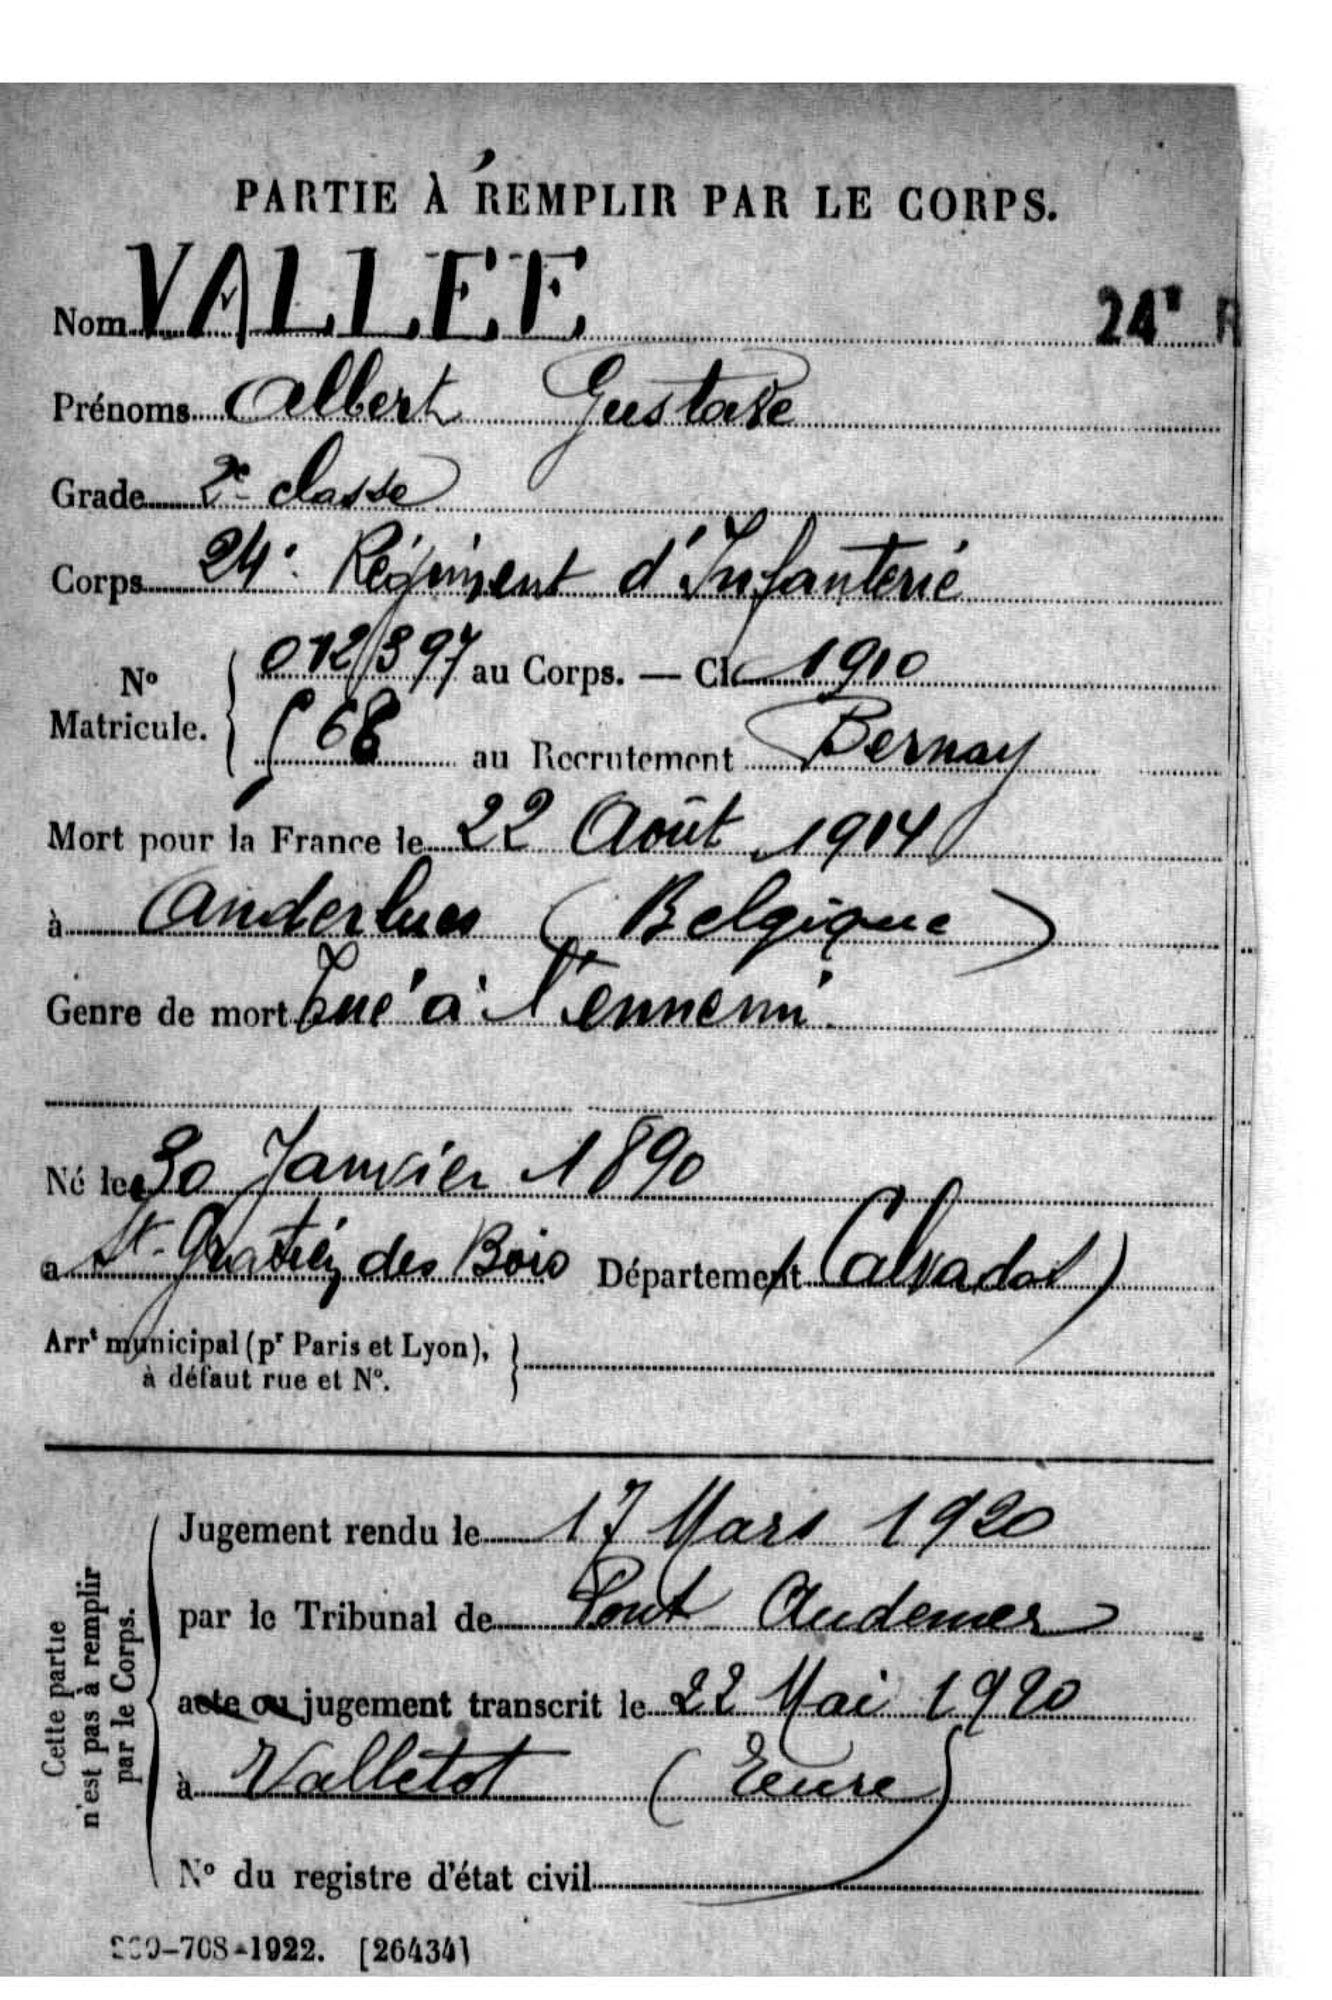 PARTIE À REMPLIR PAR LE CORPS.
Nom VALLEE 24e R
Prénoms Albert Gustave
Grade 2e classe
Corps 24e Régiment d'Infanterie
No Matricule. 012/397 au Corps. — Cl. 1910
568 au Recrutement Bernay
Mort pour la France le 22 Août 1914
à Anderlues (Belgique)
Genre de mort Tué à l'ennemi
Né le 30 Janvier 1890
à St-Gratien des Bois Département (Calvados)
Arrt municipal (pr Paris et Lyon),
à défaut rue et No.
Cette partie
n'est pas à remplir
par le Corps.
Jugement rendu le 17 Mars 1920
par le Tribunal de Pont Audemer
acte ou jugement transcrit le 22 Mai 1920
à Valletot (Eure)
No du registre d'état civil
-708-1922. [26434]